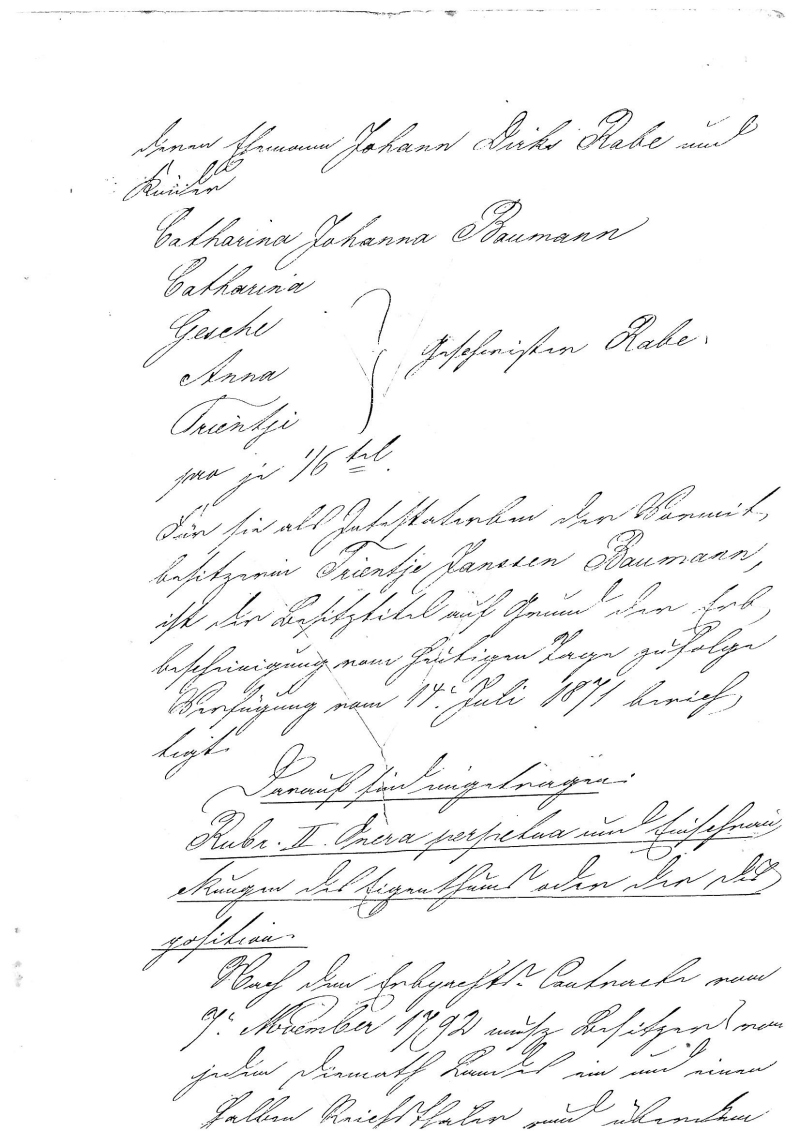 deren Ehemann Johann Dirks Rabe und
Kinder
Catharina Johanna Baumann
Catharina
Gesche
Anna
Trientji
Geschwister Rabe.
pro je 1/6 tel.
Für sie als Intestaterben der Vormit,
besitzerin Trientje Janssen Baumann,
ist der Besitztitel auf Grund der Erb,
bescheinigung vom heutigen Tage zufolge
Verfügung vom 14t. Juli 1871 berich,
tigt.
Darauf sind eingetragen:
Rubr. II. Onera perpetua und Einschrän,
ckungen des Eigenthums oder der Dis,
position.
Nach dem Erbpachts-Contracte vom
7t. November 1792 musz Besitzer von
jedem Diemath Landes ein und einen
halben Reichsthaler und überdem